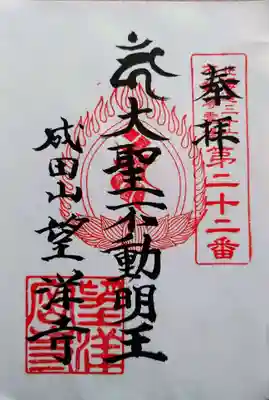 奉拝
第二十二番
大聖不動明王
成田山望洋寺
望洋